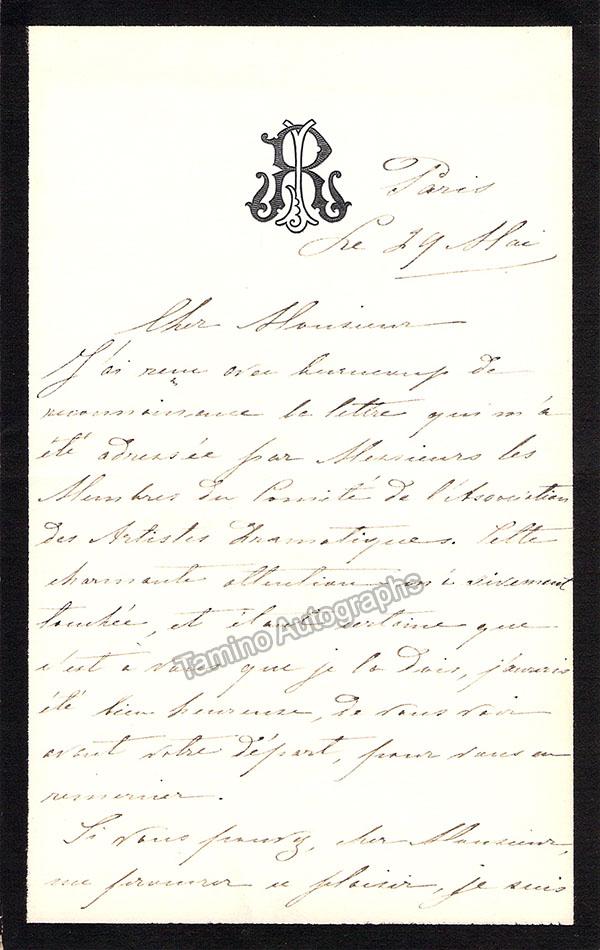 Paris
Le 29 Mai
Cher Monsieur
J'ai reçu avec beaucoup de
reconnaissance la lettre qui m'a
été adressée par Messieurs les
Membres du Comité de l'Association
des Artistes Dramatiques. Cette
charmante attention m'a vivement
touchée, et étant certaine que
c'est à vous que je la dois, j'aurais
été bien heureuse, de vous voir
avant votre départ, pour vous en
remercier.
Si vous pouvez, cher Monsieur,
me procurer ce plaisir, je suis
Tamino Autographs